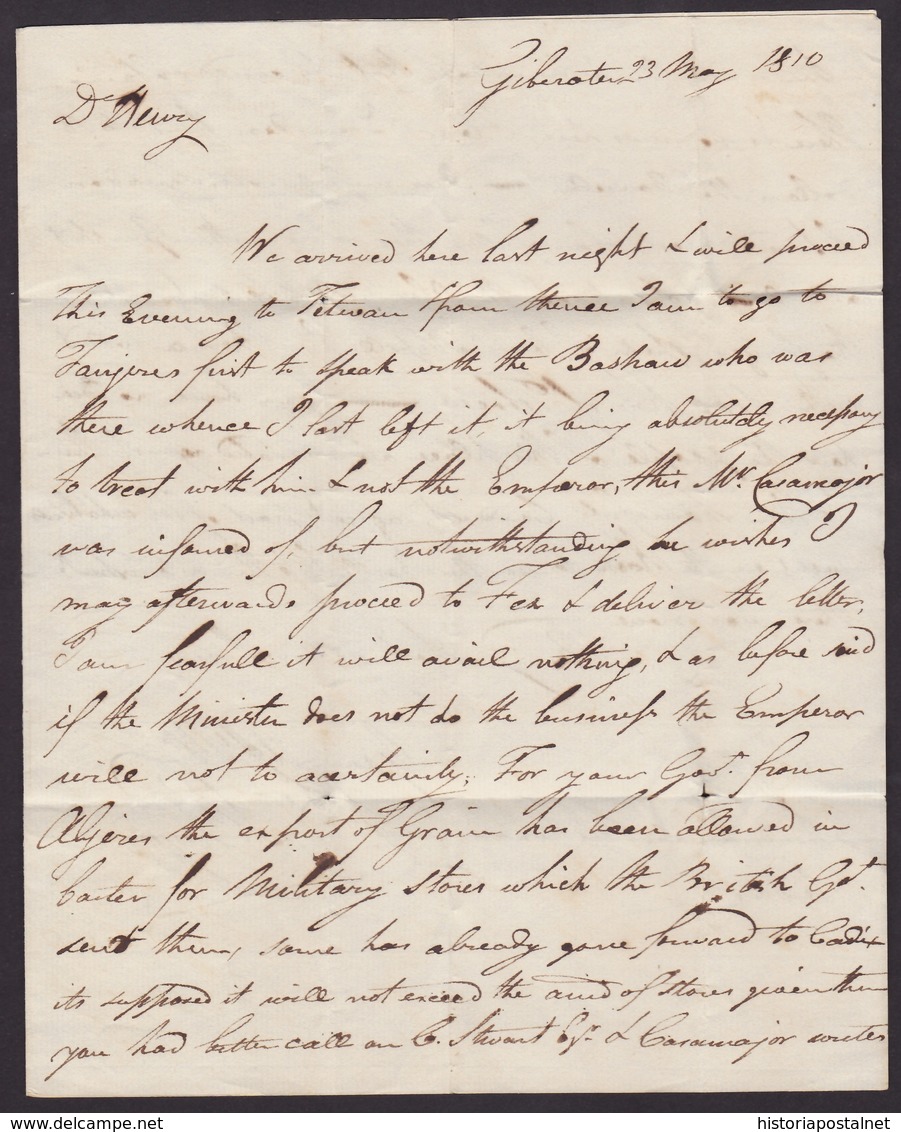 Giberater 23 May 1810
Dr Henry
We arrived here last night & will proceed
this Evening to Tetuan from thence I am to go to
Tanjeres first to speak with the Bashaw who was
there whence I last left it, it being absolutely necessary
to treat with him & not the Emperor, this Mr. Casamajor
was informed of, but notwithstanding he wishes I
may afterwards proceed to Fez & deliver the letter,
I am fearfull it will avail nothing, & as before said
if the Minister does not do the business the Emperor
will not to a certainty. For your Govt. from
Algeres the export of Grain has been allowed in
barter for Military Stores which the British Gt.
sent them, some has already gone forward to Cadix
its supposed it will not exceed the amd of stores given them
you had better call on C. Stuart Esqr. & Casamajor writes
historiapostalnet
delcampe.net